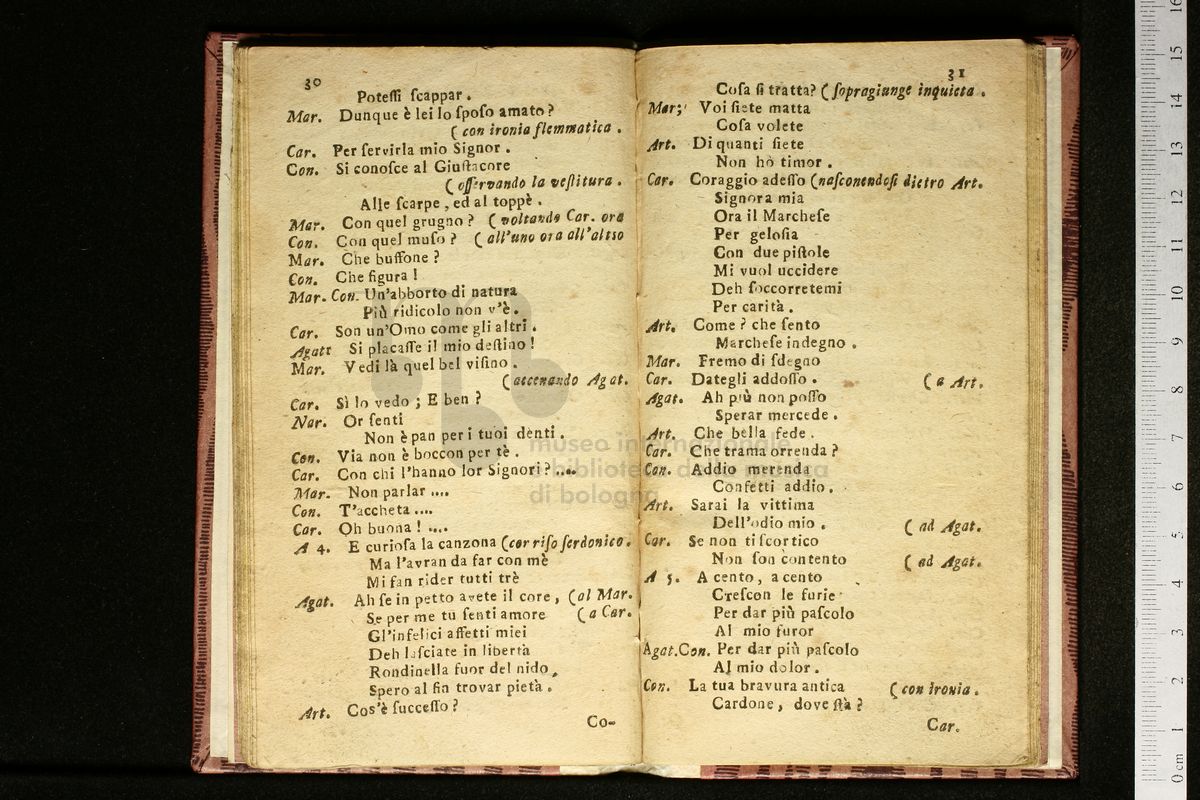 30
Potessi scappar.
Mar. Dunque è lei lo sposo amato?
( con ironia flemmatica .
Car. Per servirla mio Signor .
Con. Si conosce al Giustacore
( osservando la vestitura .
Alle scarpe , ed al toppè .
Mar. Con quel grugno ? ( voltando Car. ora
Con. Con quel muso ? ( all'uno ora all'altso
Mar. Che buffone ?
Con. Che figura !
Mar. Con. Un'abborto di natura
Più ridicolo non v'è .
Car. Son un'Omo come gli altri .
Agatt Si placasse il mio destino !
Mar. Vedi là quel bel visino .
( accenando Agat.
Car. Sì lo vedo ; E ben ?
Nar. Or senti
Non è pan per i tuoi denti .
Con. Via non è boccon per tè .
Car. Con chi l'hanno lor Signori ? ....
Mar. Non parlar ....
Con. T'accheta ....
Car. Oh buona ! ....
A 4. E curiosa la canzona (cor riso serdonico .
Ma l'avran da far con mè
Mi fan rider tutti trè
Agat. Ah se in petto avete il core , (al Mar.
Se per me tu senti amore ( a Car.
Gl'infelici affetti miei
Deh lasciate in libertà
Rondinella fuor del nido ,
Spero al fin trovar pietà .
Art. Cos'è successo ?
Co-
31
Cosa si tratta? ( sopragiunge inquieta .
Mar; Voi siete matta
Cosa volete
Art. Di quanti siete
Non hò timor .
Car. Coraggio adesso (nasconendosi dietro Art.
Signora mia
Ora il Marchese
Per gelosia
Con due pistole
Mi vuol uccidere
Deh soccorretemi
Per carità .
Art. Come ? che sento
Marchese indegno .
Mar. Fremo di sdegno
Car. Dategli addosso . ( a Art.
Agat. Ah più non posso
Sperar mercede .
Art. Che bella fede .
Car. Che trama orrenda ?
Con. Addio merenda
Confetti addio .
Art. Sarai la vittima
Dell'odio mio . ( ad Agat.
Car. Se non ti scortico
Non son contento ( ad Agat.
A 5. A cento , a cento
Crescon le furie
Per dar più pascolo
Al mio furor
Agat.Con. Per dar più pascolo
Al mio dolor .
Con. La tua bravura antica ( con ironia .
Cardone , dove stà ?
Car.
museo internazionale
e biblioteca della musica
di bologna
0 cm 1 2 3 4 5 6 7 8 9 10 11 12 13 14 15 16